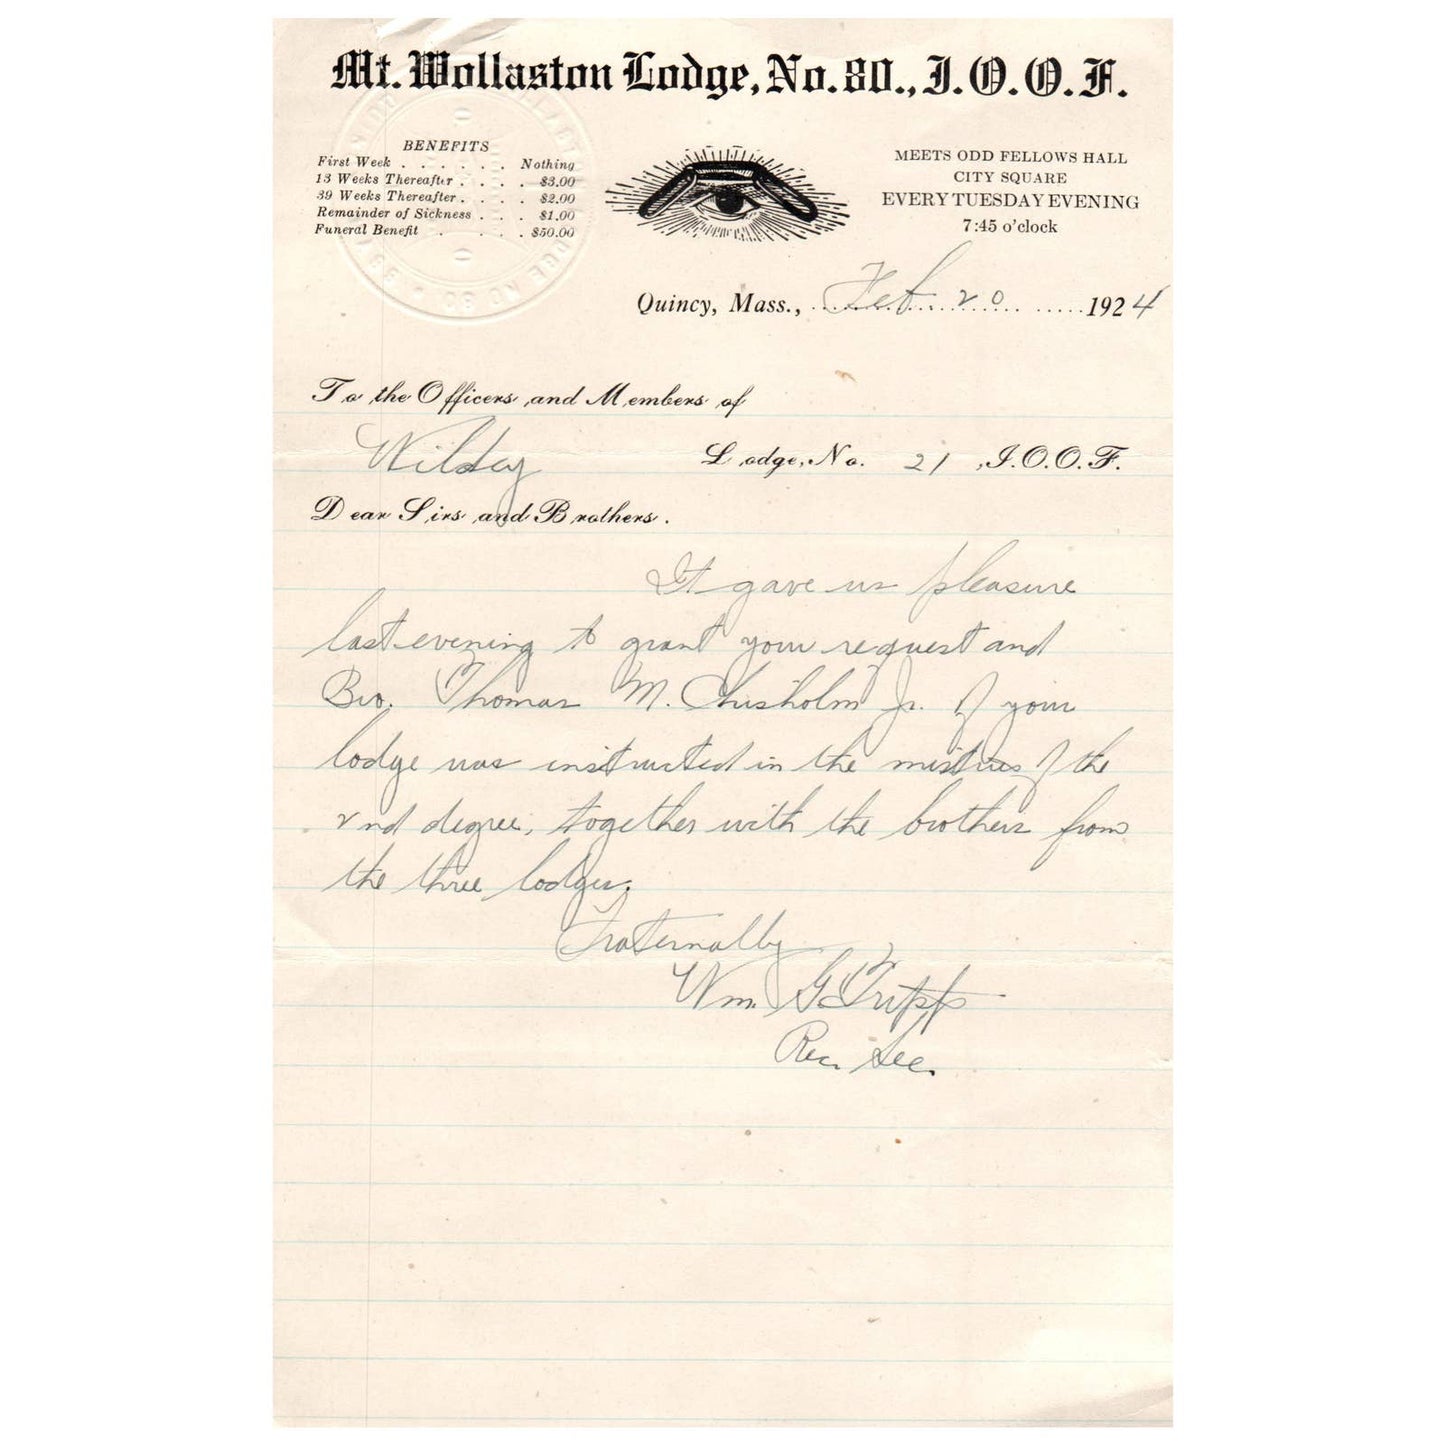 Mt. Wollaston Lodge, No. 80., I. O. O. F.
BENEFITS
First Week . . . . . . Nothing
13 Weeks Thereafter . . . . $3.00
39 Weeks Thereafter . . . . $2.00
Remainder of Sickness . . . $1.00
Funeral Benefit . . . . $50.00
MEETS ODD FELLOWS HALL
CITY SQUARE
EVERY TUESDAY EVENING
7:45 o'clock
LODGE NO 80
Quincy, Mass., Feb. 20 1924
To the Officers and Members of
Wildey Lodge, No. 21, I.O.O.F.
Dear Sirs and Brothers.
It gave us pleasure
last evening to grant your request and
Bro. Thomas M. Chisholm Jr. of your
lodge was instructed in the mistries of the
2nd degree, together with the brothers from
the three lodges.
Fraternally
Wm. G Tripp
Rec. Sec.